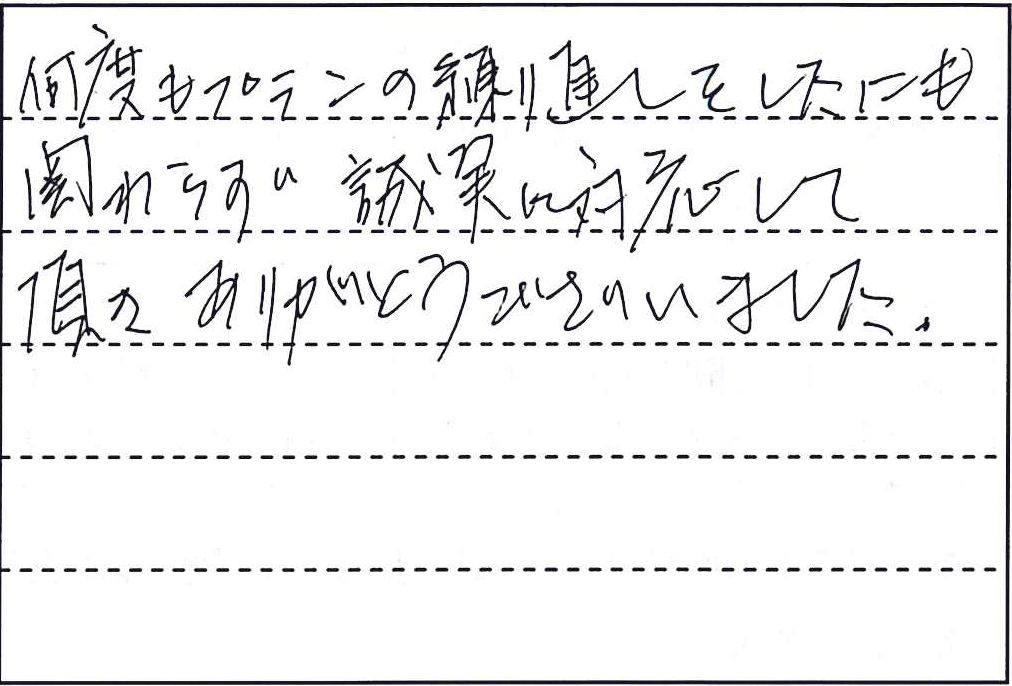 何度もプランの練り直しをしたにも
関わらず 誠実に対応して
頂き ありがとうございました。